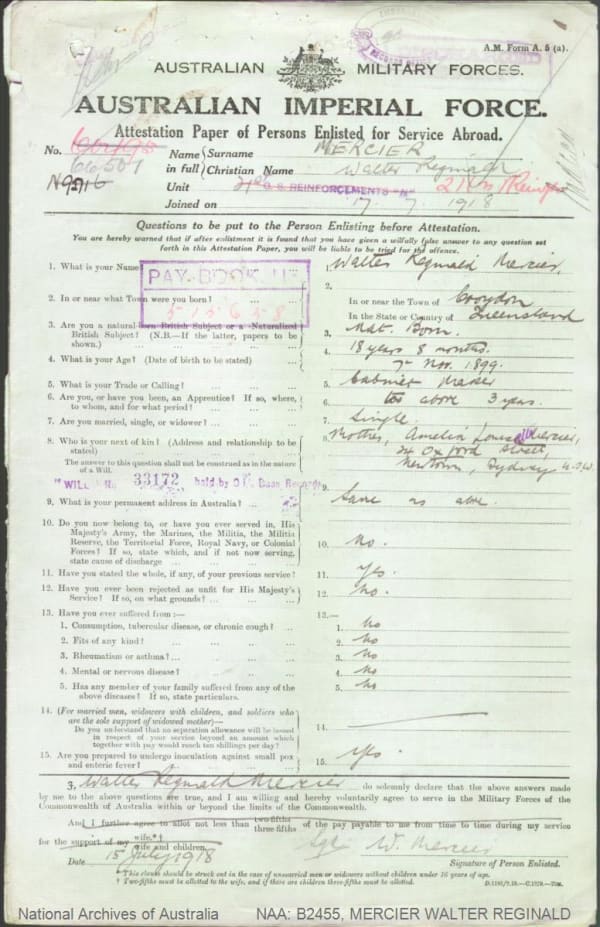 A.M. Form A. 5 (a).
AUSTRALIAN MILITARY FORCES.
AUSTRALIAN IMPERIAL FORCE.
Attestation Paper of Persons Enlisted for Service Abroad.
No. 66501
N97716
Name in full
Surname MERCIER
Christian Name Walter Reginald
Unit G. S. REINFORCEMENTS "N"
Joined on 17 . 7 . 1918
Questions to be put to the Person Enlisting before Attestation.
You are hereby warned that if after enlistment it is found that you have given a wilfully false answer to any question set
forth in this Attestation Paper, you will be liable to be tried for the offence.
1. What is your Name
Walter Reginald Mercier.
PAY-BOOK
515658
2. In or near what Town were you born? ... ...
2. In or near the Town of Croydon
In the State or Country of Queensland
3. Are you a natural-born British Subject or a Naturalized
British Subject? (N.B.—If the latter, papers to be
shown.) ... ...
3. Nat. Born.
4. What is your Age? (Date of birth to be stated) ...
4. 18 years 8 months.
7th Nov. 1899.
5. What is your Trade or Calling? ... ...
5. Cabinet Maker
6. Are you, or have you been, an Apprentice? If so, where,
to whom, and for what period? ... ...
6. as above 3 years.
7. Are you married, single, or widower? ... ...
7. Single.
8. Who is your next of kin? (Address and relationship to be
stated) ... ...
The answer to this question shall not be construed as in the nature
of a Will.
8. Mother, Amelia Louisa Mercier,
24 Oxford Street,
Newtown, Sydney N.S.W.
"WILL" No 33172, held by O i/c Base Records
9. What is your permanent address in Australia? ...
9. Same as above.
10. Do you now belong to, or have you ever served in, His
Majesty's Army, the Marines, the Militia, the Militia
Reserve, the Territorial Force, Royal Navy, or Colonial
Forces? If so, state which, and if not now serving,
state cause of discharge ... ...
10. No.
11. Have you stated the whole, if any, of your previous service?
11. Yes.
12. Have you ever been rejected as unfit for His Majesty's
Service? If so, on what grounds? ... ...
12. No.
13. Have you ever suffered from:—
13.—
1. Consumption, tubercular disease, or chronic cough? ...
1. No
2. Fits of any kind? ... ...
2. No
3. Rheumatism or asthma? ... ...
3. No
4. Mental or nervous disease? ... ...
4. No
5. Has any member of your family suffered from any of the
above diseases? If so, state particulars.
5. No
14. (For married men, widowers with children, and soldiers who
are the sole support of widowed mother)—
Do you understand that no separation allowance will be issued
in respect of your service beyond an amount which
together with pay would reach ten shillings per day?
14.
15. Are you prepared to undergo inoculation against small pox
and enteric fever? ... ...
15. Yes.
I, Walter Reginald Mercier do solemnly declare that the above answers made
by me to the above questions are true, and I am willing and hereby voluntarily agree to serve in the Military Forces of the
Commonwealth of Australia within or beyond the limits of the Commonwealth.
And I further agree to allot not less than two-fifths three-fifths of the pay payable to me from time to time during my service
for the support of my wife.*† wife and children.
Date 15 July 1918
Sgd. W. Mercier
Signature of Person Enlisted.
* This clause should be struck out in the case of unmarried men or widowers without children under 16 years of age.
† Two-fifths must be allotted to the wife, and if there are children three-fifths must be allotted.
National Archives of Australia
NAA: B2455, MERCIER WALTER REGINALD